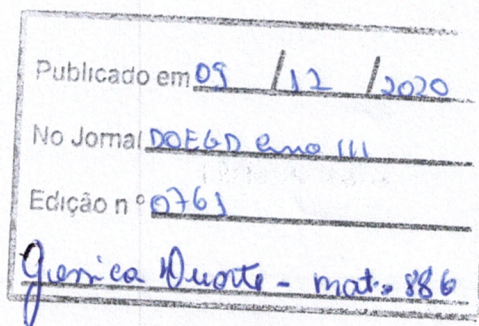 Publicado em 09 / 12 / 2020
No Jornal DOEGD ano III
Edição nº 0761
Duarte - mat. 886